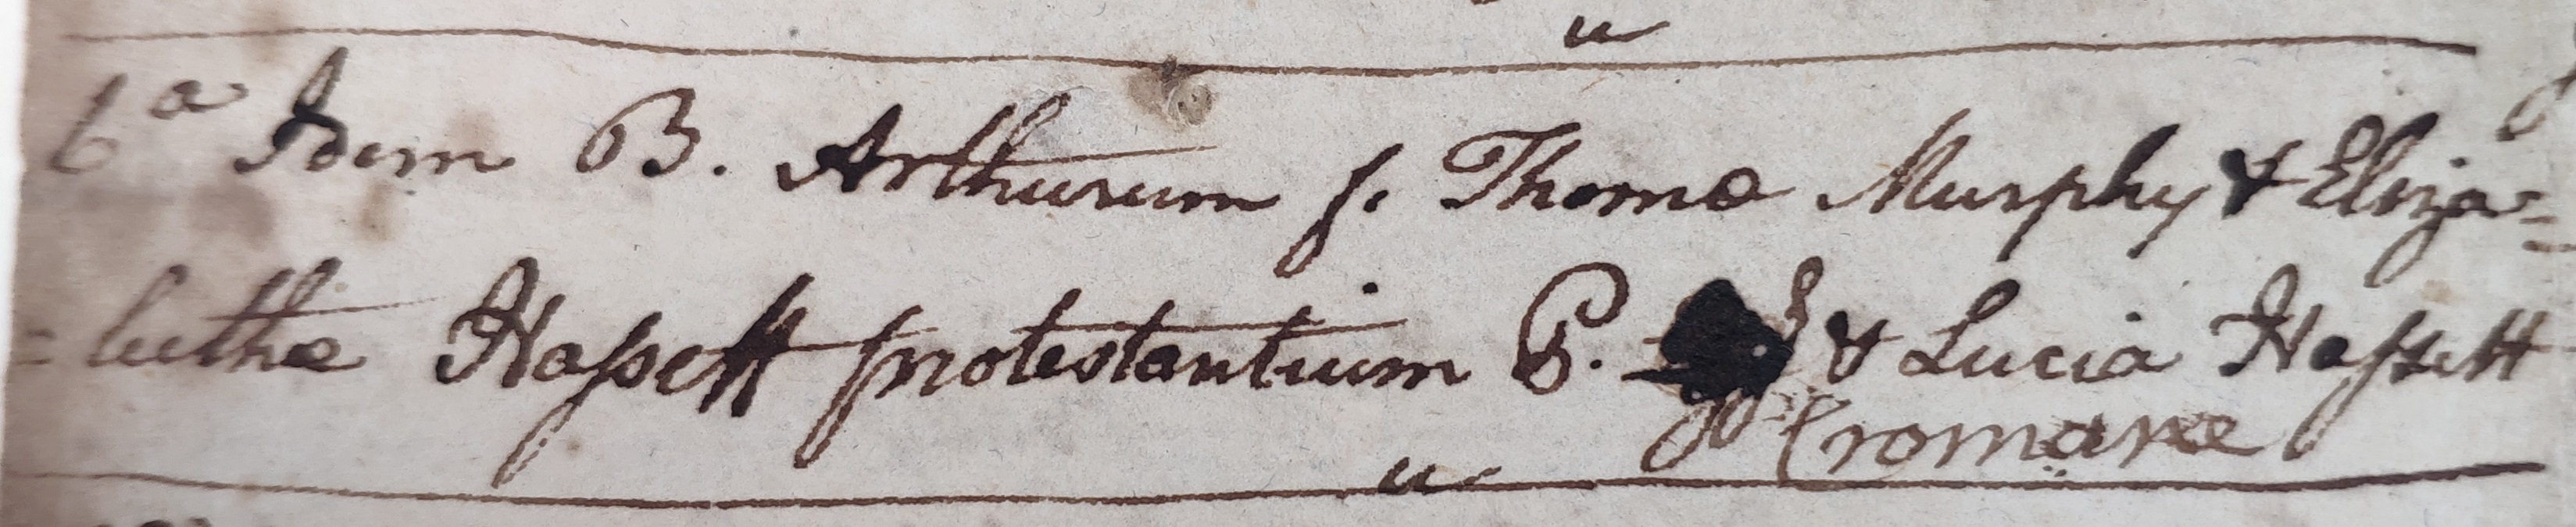 6a Idem B. Arthurum f. Thoma Murphy & Eliza=
=betha Hassett protestantium P. & Lucia Hassett
Cromane